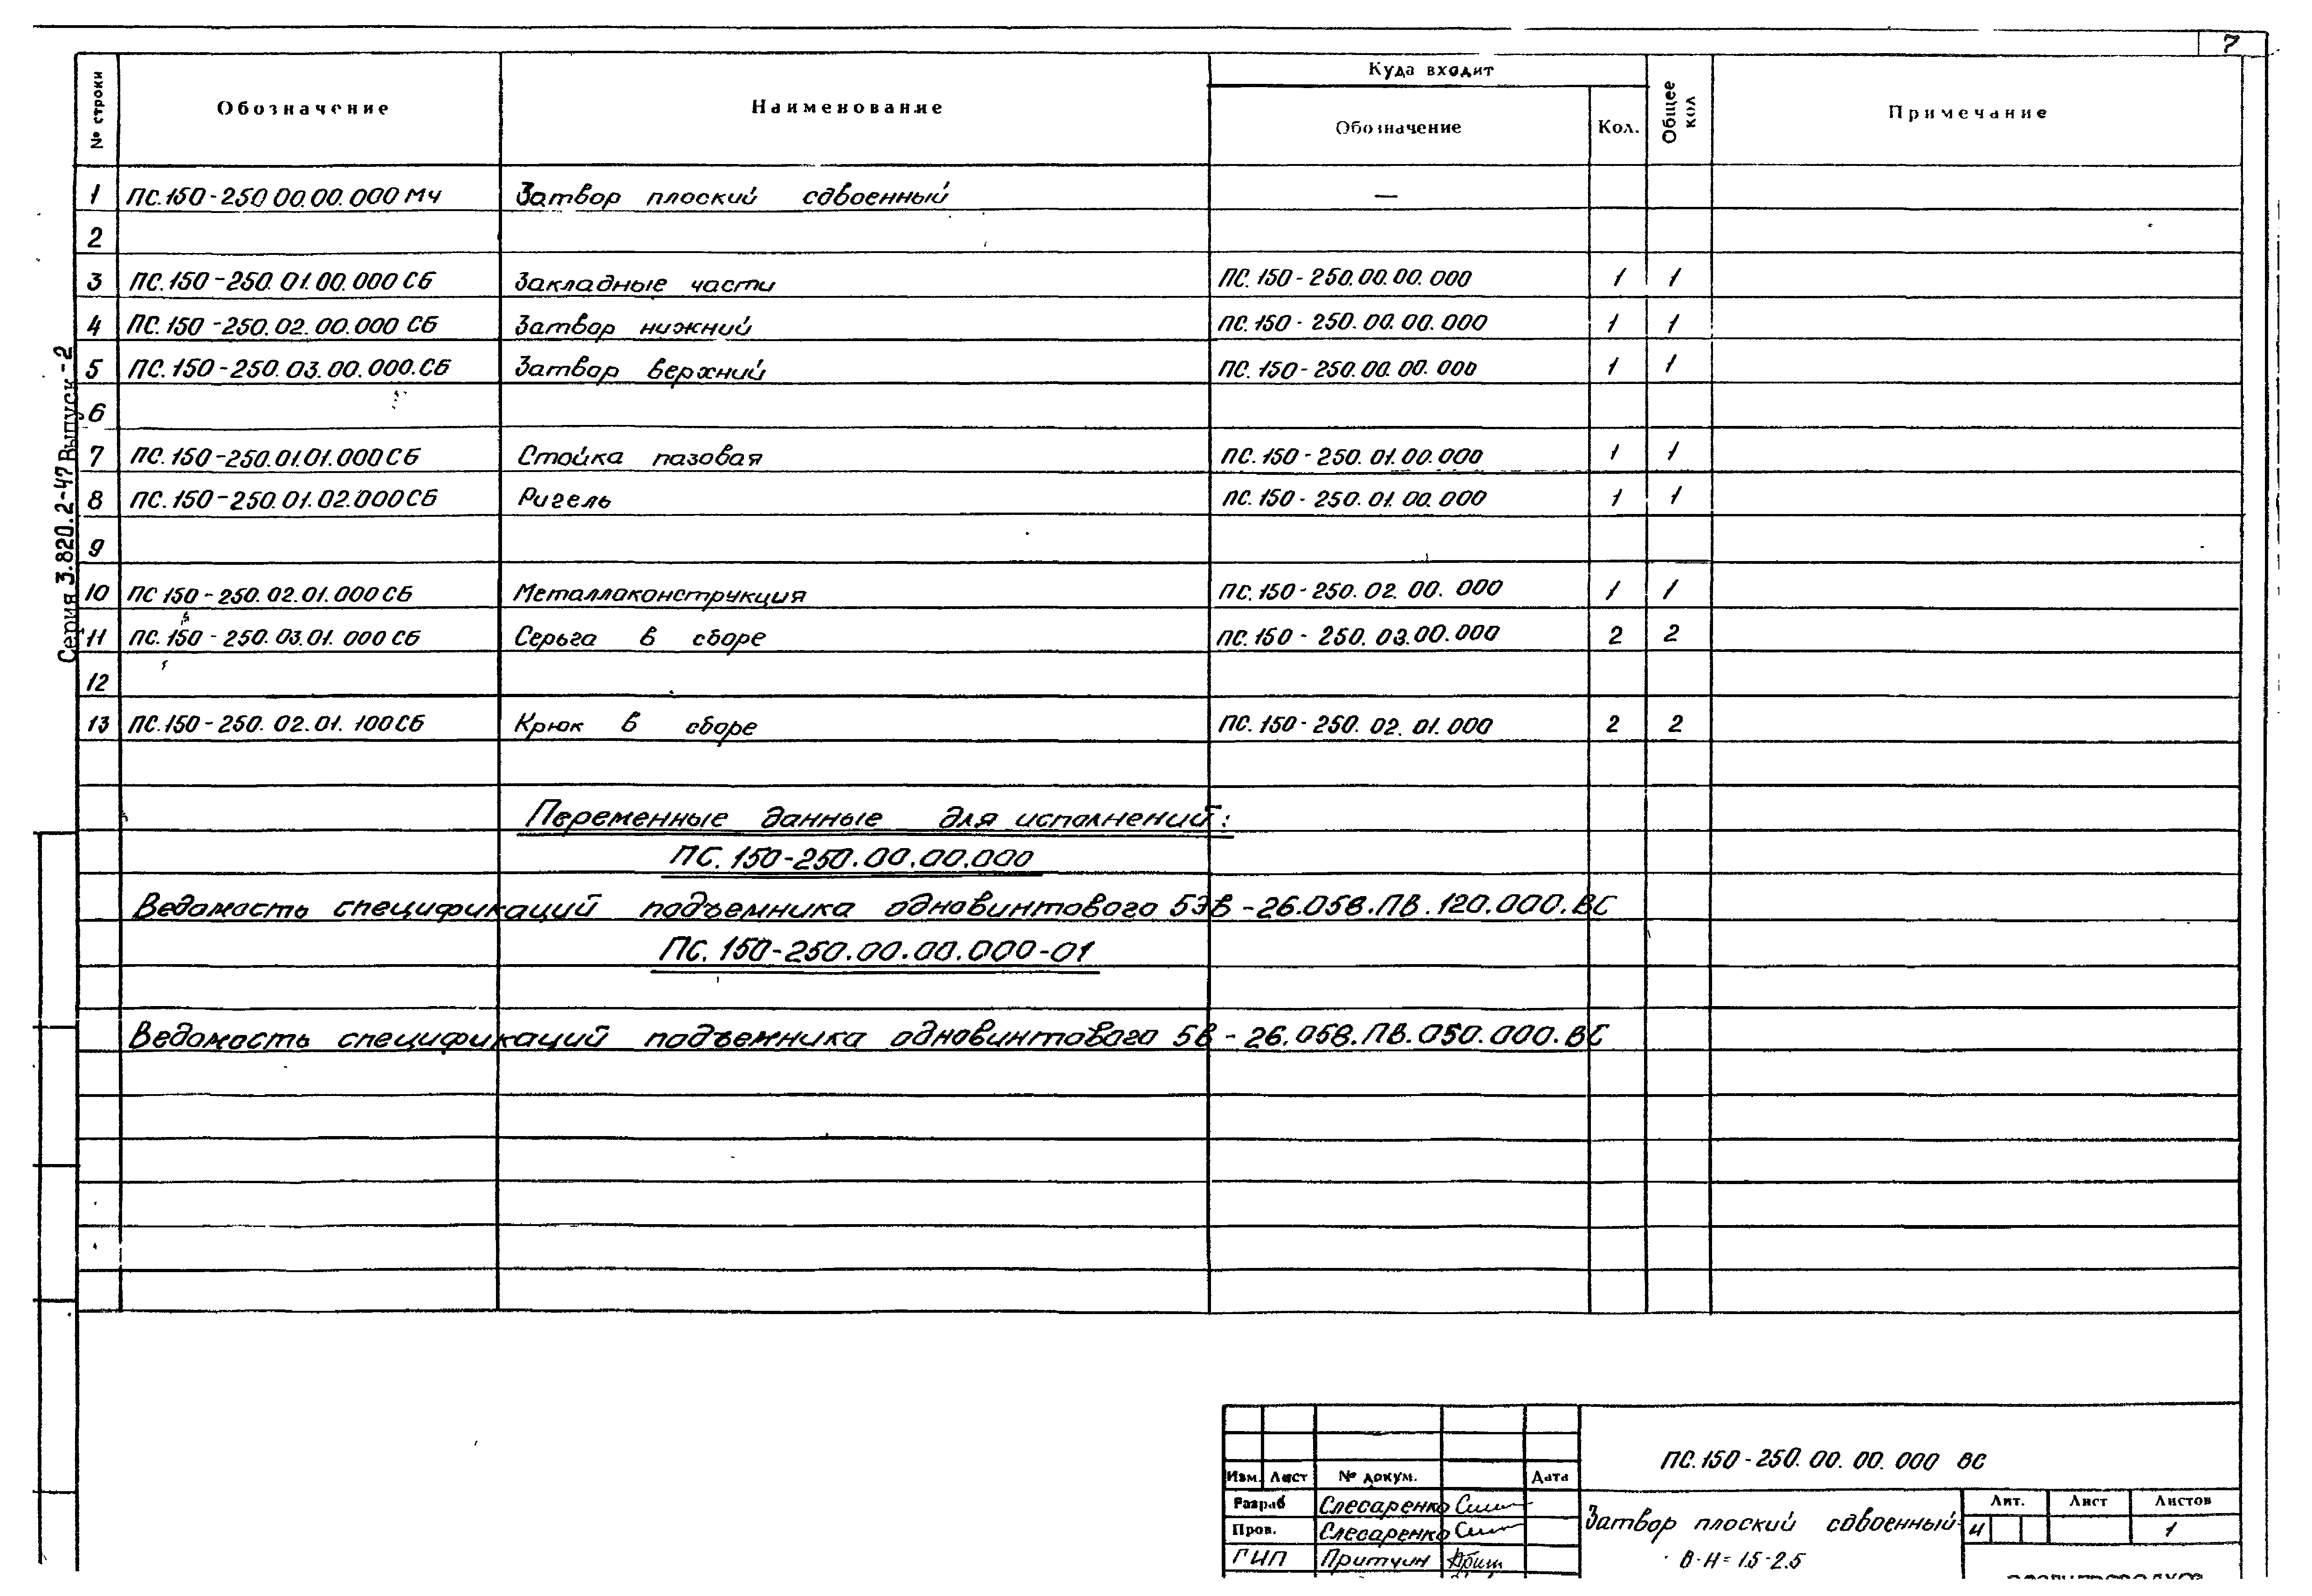 7
Серия 3.820.2-47 Выпуск-2
№ строки Обозначение Наименование Куда входит Общее кол Примечание
Обозначение Кол.
1 ПС.150-250 00.00.000 МЧ Затвор плоский сдвоенный —
2
3 ПС.150-250.01.00.000 СБ Закладные части ПС.150-250.00.00.000 1 1
4 ПС.150-250.02.00.000 СБ Затвор нижний ПС.150-250.00.00.000 1 1
5 ПС.150-250.03.00.000.СБ Затвор верхний ПС.150-250.00.00.000 1 1
6
7 ПС.150-250.01.01.000 СБ Стойка пазовая ПС.150-250.01.00.000 1 1
8 ПС.150-250.01.02.000 СБ Ригель ПС.150-250.01.00.000 1 1
9
10 ПС 150-250.02.01.000 СБ Металлоконструкция ПС.150-250.02.00.000 1 1
11 ПС.150-250.03.01.000 СБ Серьга в сборе ПС.150-250.03.00.000 2 2
12
13 ПС.150-250.02.01.100 СБ Крюк в сборе ПС.150-250.02.01.000 2 2
Переменные данные для исполнений:
ПС.150-250.00.00.000
Ведомость спецификаций подъемника одновинтового 5ЭВ-26.058.ПВ.120.000.ВС
ПС.150-250.00.00.000-01
Ведомость спецификаций подъемника одновинтового 5В-26.058.ПВ.050.000.ВС
ПС.150-250.00.00.000 ВС
Изм. Лист № докум. Дата
Разраб Слесаренко
Пров. Слесаренко
ГИП Притчин
Затвор плоский сдвоенный
В·Н=1.5-2.5
Лит. Лист Листов
И 1